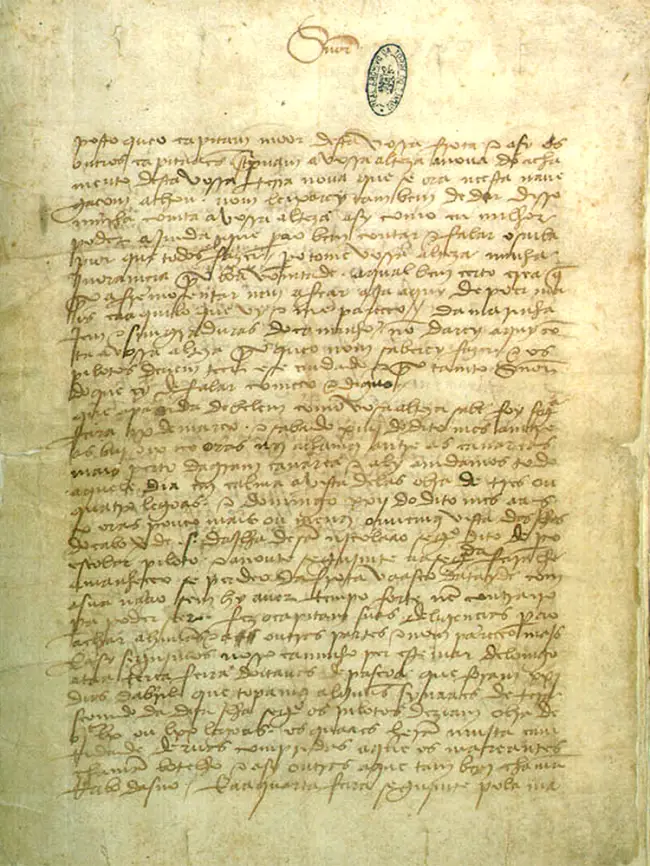 Snõr
posto que o capitam moor desta vossa frota e asy os
outros capitaães screpuam a vossa alteza a noua do acha
mento desta vossa terra noua que se ora neesta naue
gaçom achou. nom leixarey tambem de dar disso
minha comta a vossa alteza asy como eu milhor
poder ajmda que pera o bem contar e falar o saiba
pior que todos fazer. / pero tome vossa alteza minha
jnoramçia por boa vomtade. a qual bem çerto crea que
por afremosentar nem afear aja aquy de poer ma
is ca aquilo que vy e me pareçeo. / da marinha
jem e simgraduras do caminho nõ darey aquy cõ
ta a vossa alteza por que o nom saberey fazer e os
pilotos deuem teer ese cuidado e por tanto Snõr
do que ey de falar começo e diguo. /
que a partida de belem como vosa alteza sabe foy segª
feira ix de março. e sabado xiiij do dito mes amtre
as biij e ix oras nos achamos amtre as canareas
mais perto da gram canarea e aly amdamos todo
aquele dia em calma a vista delas obra de tres ou
quatro legoas. e domingo xxij do dito mes aas
x oras pouco mais ou menos ouuemos vista das jlhas
do cabo verde. s. da jlha de sã njcolaao segº dito de pº
escolar piloto. e a noute segujmte aa segª feira lhe
amanheçeo se perdeo da frota vaasco datayde com
a sua naao sem hy auer tempo forte nẽ contrairo
pera poder seer. fez o capitam suas deligençias pera o
achar a huũas e a outras partes e nom pareçeo majs
E asy segujmos nosso caminho per este mar de lomgo
ataa terça feira doitauas de pascoa que foram xxj
dias dabril que topamos alguũs synaaes de tera
seemdo da dita jlha segº os pilotos deziam obra de
bjc lx ou lxx legoas. os quaaes herã mujta cam
tidade deruas compridas a que os mareantes
chamã botelho e asy outras a que tambem chamã
rrabo dasno. / E aa quarta feira segujmte pola ma